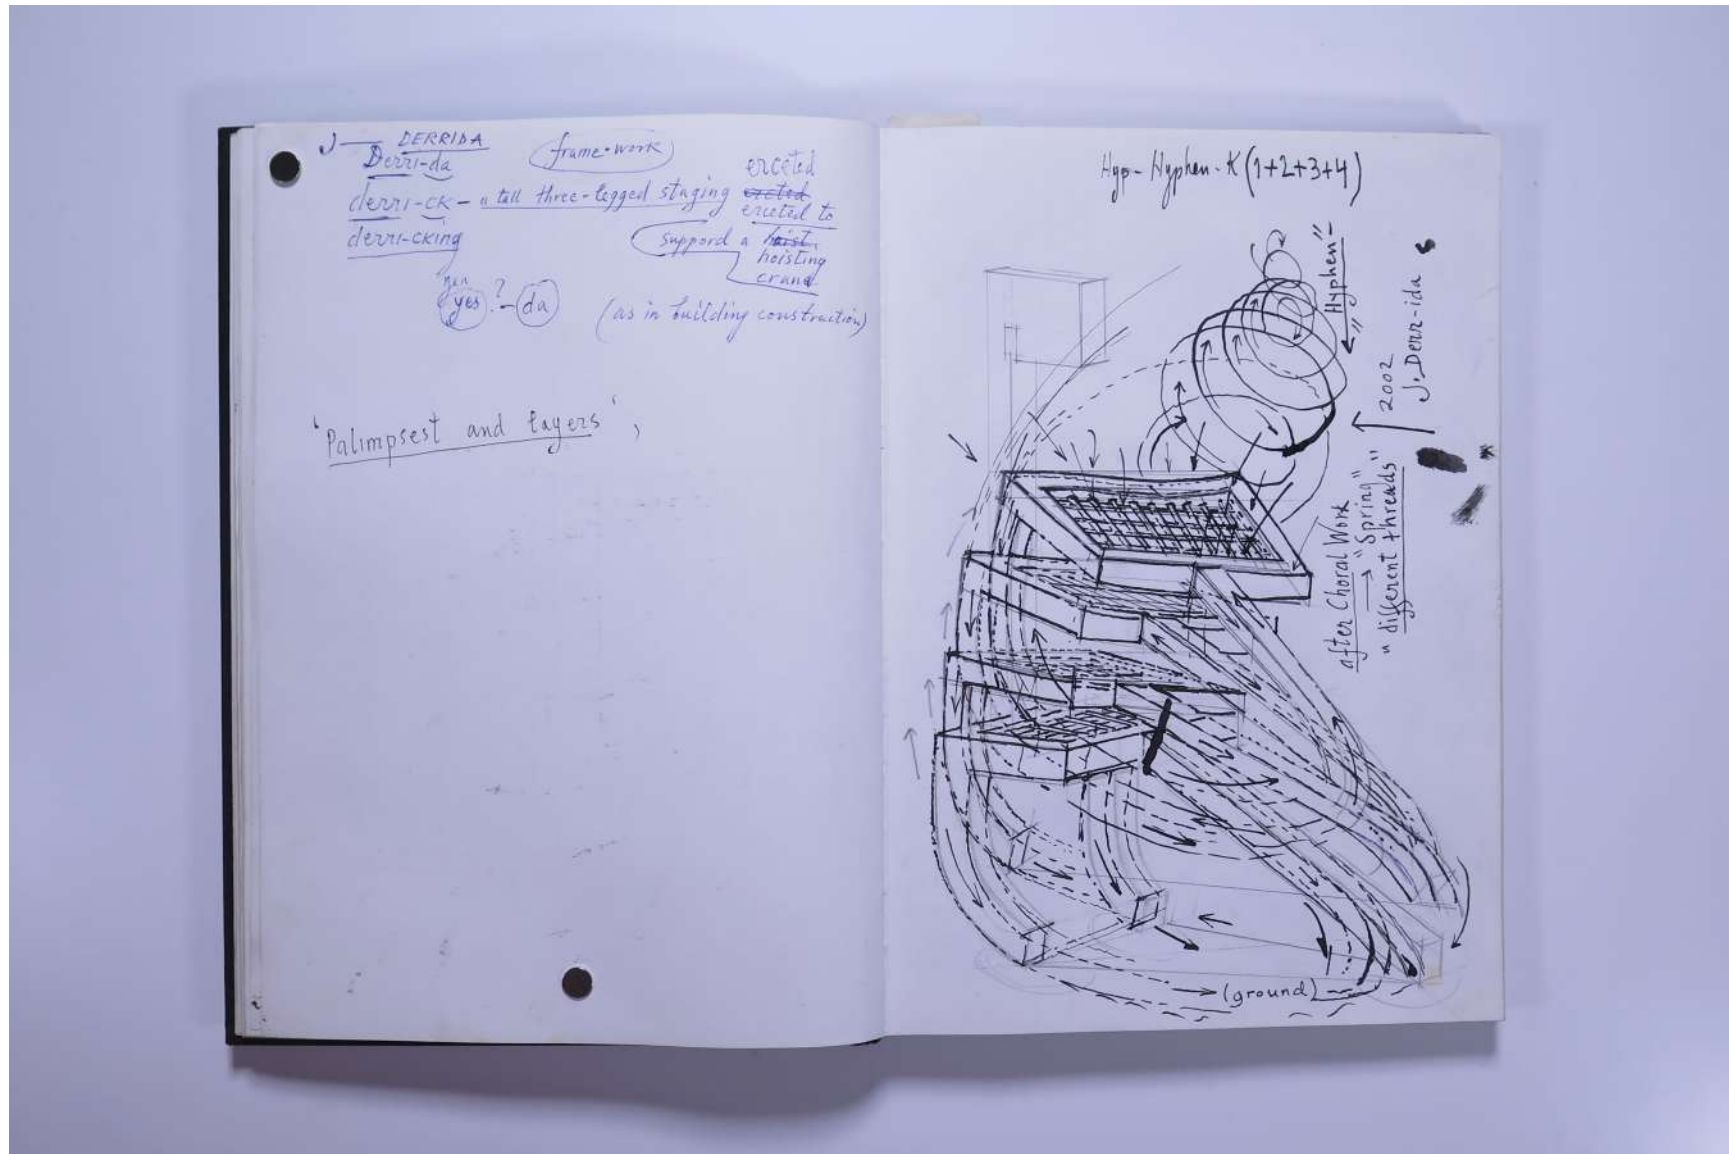 J — DERRIDA
Derri-da
frame-work
derri-ck - a tall three-legged staging
erceted
ercted
erceted to
derri-cking
suppord a hoist
hoisting
crane
yes ? - da
(as in building construction)
'Palimpsest and layers',
Hyp-Hyphen-K (1+2+3+4)
"Hyphen"
2002
J. Derr-ida
after Choral Work
→ "Spring"
"different threads"
(ground)